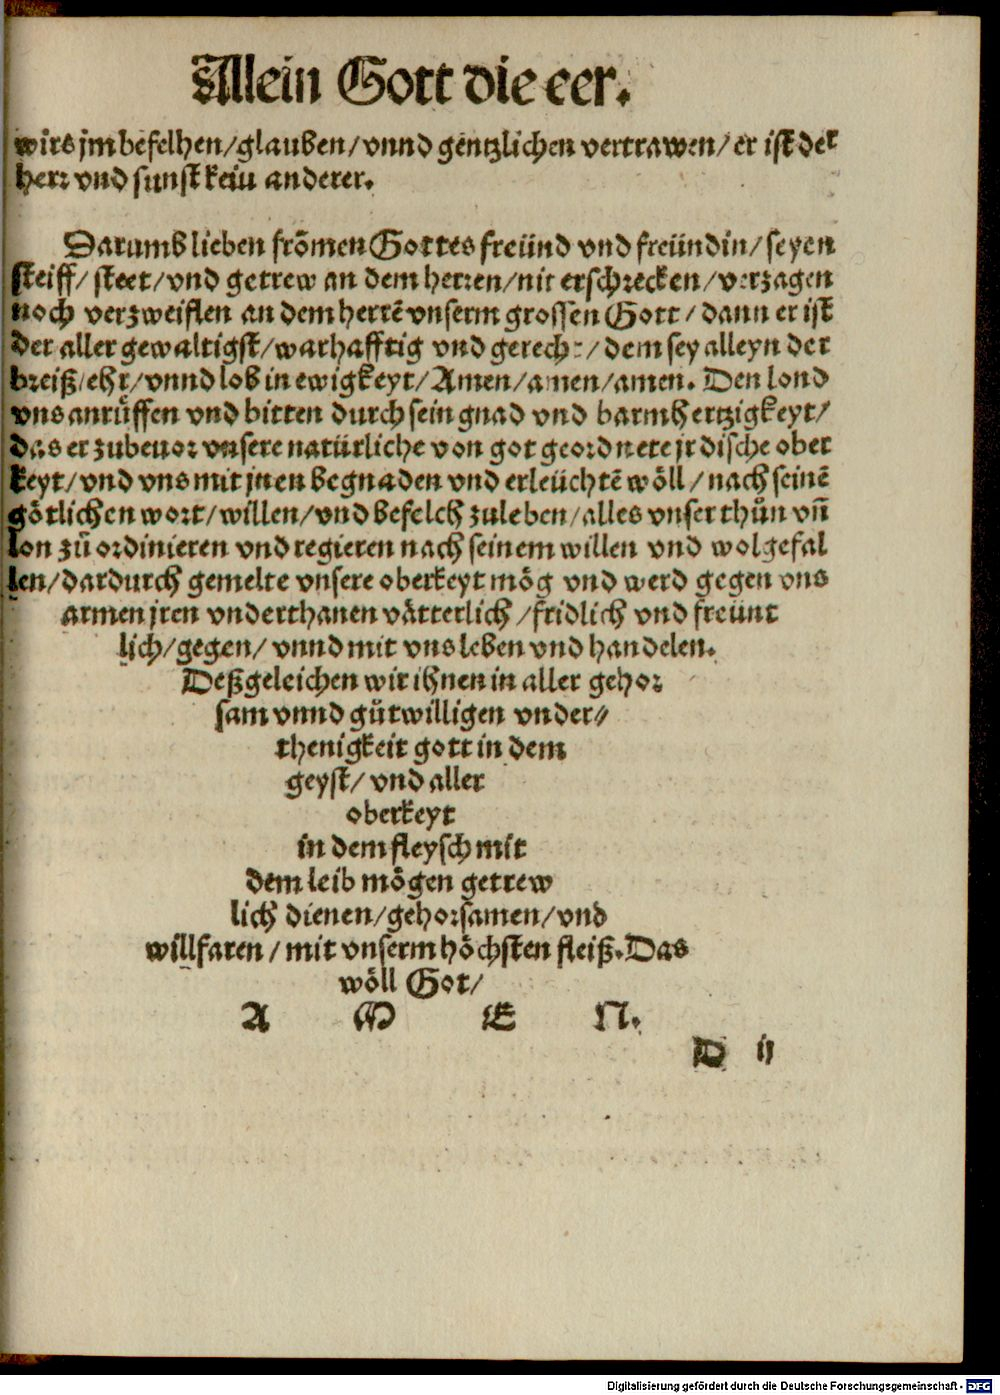 Allein Gott die eer.
wirs jm befelhen/glauben/vnnd gentzlichen vertrawen/er ist der
herr vnd sunst kein anderer.
Darumb lieben frõmen Gottes freünd vnd freündin/seyen
steiff/steet/vnd getrew an dem herren/nit erschrecken/verzagen
noch verzweiflen an dem herrẽ vnserm grossen Gott/dann er ist
der aller gewaltigst/warhafftig vnd gerecht/dem sey alleyn der
breiß/ehr/vnnd lob in ewigkeyt/Amen/amen/amen. Den lond
vns anrüffen vnd bitten durch sein gnad vnd barmhertzigkeyt/
das er zubeuor vnsere natürliche von got geordnete jrdische ober
keyt/vnd vns mit jnen begnaden vnd erleüchtẽ wöll/nach seinẽ
götlichen wort/willen/vnd befelch zuleben/alles vnser thůn vñ
lon zů ordinieren vnd regieren nach seinem willen vnd wolgefal
len/dardurch gemelte vnsere oberkeyt mög vnd werd gegen vns
armen jren vnderthanen vätterlich/fridlich vnd freünt
lich/gegen/vnnd mit vns leben vnd handelen.
Deßgeleichen wir ihnen in aller gehor
sam vnnd gůtwilligen vnder⸗
thenigkeit gott in dem
geyst/vnd aller
oberkeyt
in dem fleysch mit
dem leib mögen getrew
lich dienen/gehorsamen/vnd
willfaren/mit vnserm höchsten fleiß. Das
wöll Got/
A M E N.
D ij
Digitalisierung gefördert durch die Deutsche Forschungsgemeinschaft - DFG